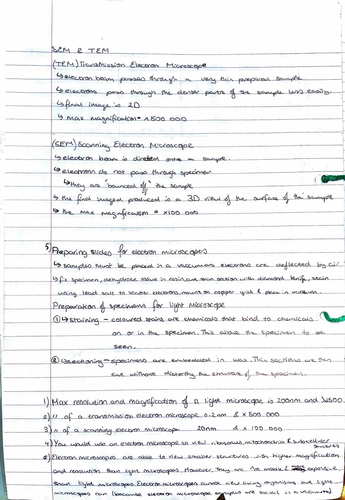 SEM & TEM
(TEM) Transmission Electron Microscope
↳ electron beam passes through a very thin prepared sample
↳ electrons pass through the denser parts of the sample less easily
↳ final image is 2D
↳ max magnification = x500 000
(SEM) Scanning Electron Microscope
↳ electron beam is directed onto a sample.
↳ electrons do not pass through specimen
↳ they are 'bounced off' the sample
↳ the final image produced is a 3D view of the surface of the sample
↳ the max magnification = x100 000
5) Preparing slides for electron microscopes
↳ samples must be placed in a vacuum as electrons are deflected by air
↳ fix specimen, dehydrate tissue in resin, cut thin section with diamond knife, stain
using lead salt to scatter electrons, mount on copper grid & place in vacuum.
Preparation of specimens for light Microscope
① ↳ staining - coloured stains are chemicals that bind to chemicals
on or in the specimen. This allows the specimen to be
seen.
② Sectioning - specimens are embedded in wax. Thin sections are then
cut without distorting the structure of the specimen.
1) Max resolution and magnification of a light microscope is 200nm and 1500.
2) " of a transmission electron microscope 0.2nm & x 500 000
3) " of a scanning electron microscope 20nm & x 100 000
4) You would use an electron microscope to view ribosomes, mitochondria & subcellular
structures
5) Electron microscopes are able to view smaller structures with higher magnification
and resolution than light microscopes. However, they are expensive
than light microscopes. Electron microscopes cannot view living organisms but light
microscopes can (because electron microscope samples are placed in a vacuum)